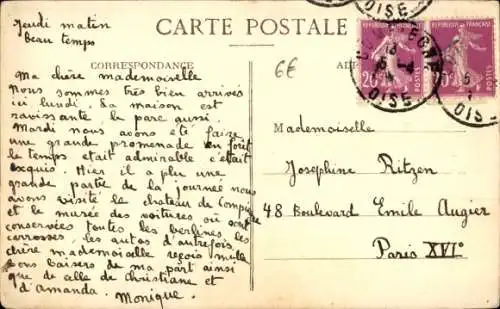 Jeudi matin
beau temps
CARTE POSTALE
CORRESPONDANCE
6€
Ma chère mademoiselle
Nous sommes très bien arrivés
ici lundi. La maison est
ravissante le parc aussi.
Mardi nous avons été faire
une grande promenade en forêt
le temps etait admirable c'était
exquis. Hier il a plu une
grande partie de la journée nous
avons visité le chateau de Compiègne
et le musée des voitures où sont
conservées toutes les berlines, les
carrosses, les autos d'autrefois.
chère mademoiselle reçois mille
bons baisers de ma part ainsi
que de celle de Christiane et
d'Amanda. Monique.
RÉPUBLIQUE FRANÇAISE
20c
POSTES
OISE
OISE
Mademoiselle
Josephine Ritzen
48 Boulevard Emile Augier
Paris XVIe